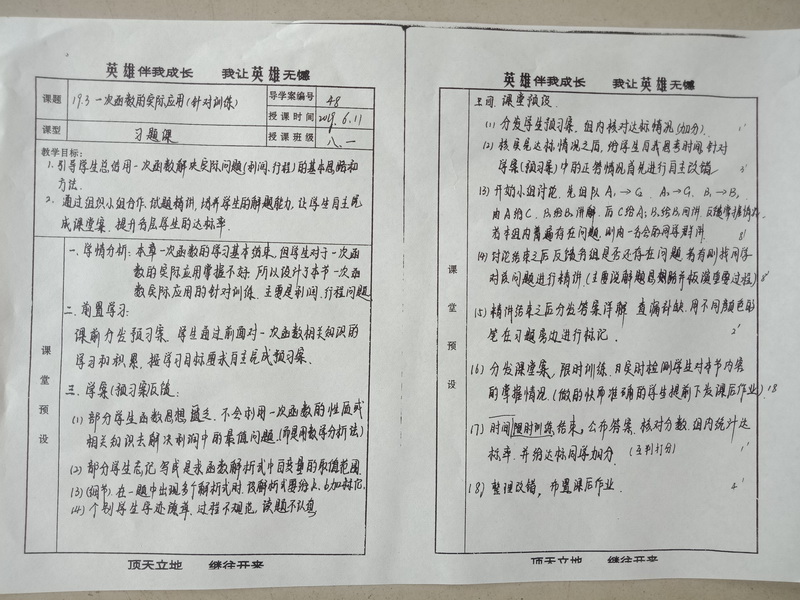 英雄伴我成长 我让英雄无憾
课题 19.3 一次函数的实际应用(针对训练) 导学案编号 48
授课时间 2019.6.11
课型 习题课 授课班级 八.一
教学目标:
1. 引导学生总结用一次函数解决实际问题(利润、行程)的基本思路和
方法.
2. 通过组织小组合作、试题精讲、培养学生的解题能力,让学生自主完
成课堂案,提升各层学生的达标率.
课堂预设
一、学情分析:本章一次函数的学习基本结束,但学生对于一次函
数的实际应用掌握不好,所以设计了本节一次函
数实际应用的针对训练,主要是利润、行程问题
二、前置学习:
课前分发预习案,学生通过前面对一次函数相关知识的
学习和积累,按学习目标要求自主完成预习案.
三、学案(预习案)反馈:
(1) 部分学生函数思想匮乏,不会利用一次函数的性质或
相关知识去解决利润中的最值问题.(而是用数学分析法)
(2) 部分学生忘记写或是求函数解析式中自变量的取值范围.
(3) (细节).在一题中出现多个解析式时,该解析式要给k、b加标记.
(4) 个别学生字迹潦草,过程不规范,读题不认真
顶天立地 继往开来
英雄伴我成长 我让英雄无憾
课堂预设
四. 课堂预设
(1) 分发学生预习案,组内核对达标情况(加分). 1'
(2) 核实完达标情况之后,给学生自我思考时间,针对
学案(预习案)中的正答情况首先进行自主改错. 5'
(3) 开始小组讨论,先组队 A₁→C₁ A₂→C₂ B₁→B₂
由A给C,B₁给B₂讲解,后C给A;B₂给B₁回讲,反馈掌握情况.
若本组内普遍存在问题,则由一名会的同学群讲. 8'
(4) 讨论结束之后反馈各组是否还存在问题,若有则找同学
对该问题进行精讲(主要说解题思路并板演重要过程) 8'
(5) 精讲结束之后分发答案详解,查漏补缺,用不同颜色的
笔在习题旁边进行标记. 2'
(6) 分发课堂案,限时训练,日实时检测学生对本节内容
的掌握情况.(做的快而准确的学生提前下发课后作业) 18'
(7) 时间限时训练结束,公布答案,核对分数,组内统计达
标率,并给达标同学加分. (互判打分) 1'
(8) 整理改错,布置课后作业. 4'
顶天立地 继往开来